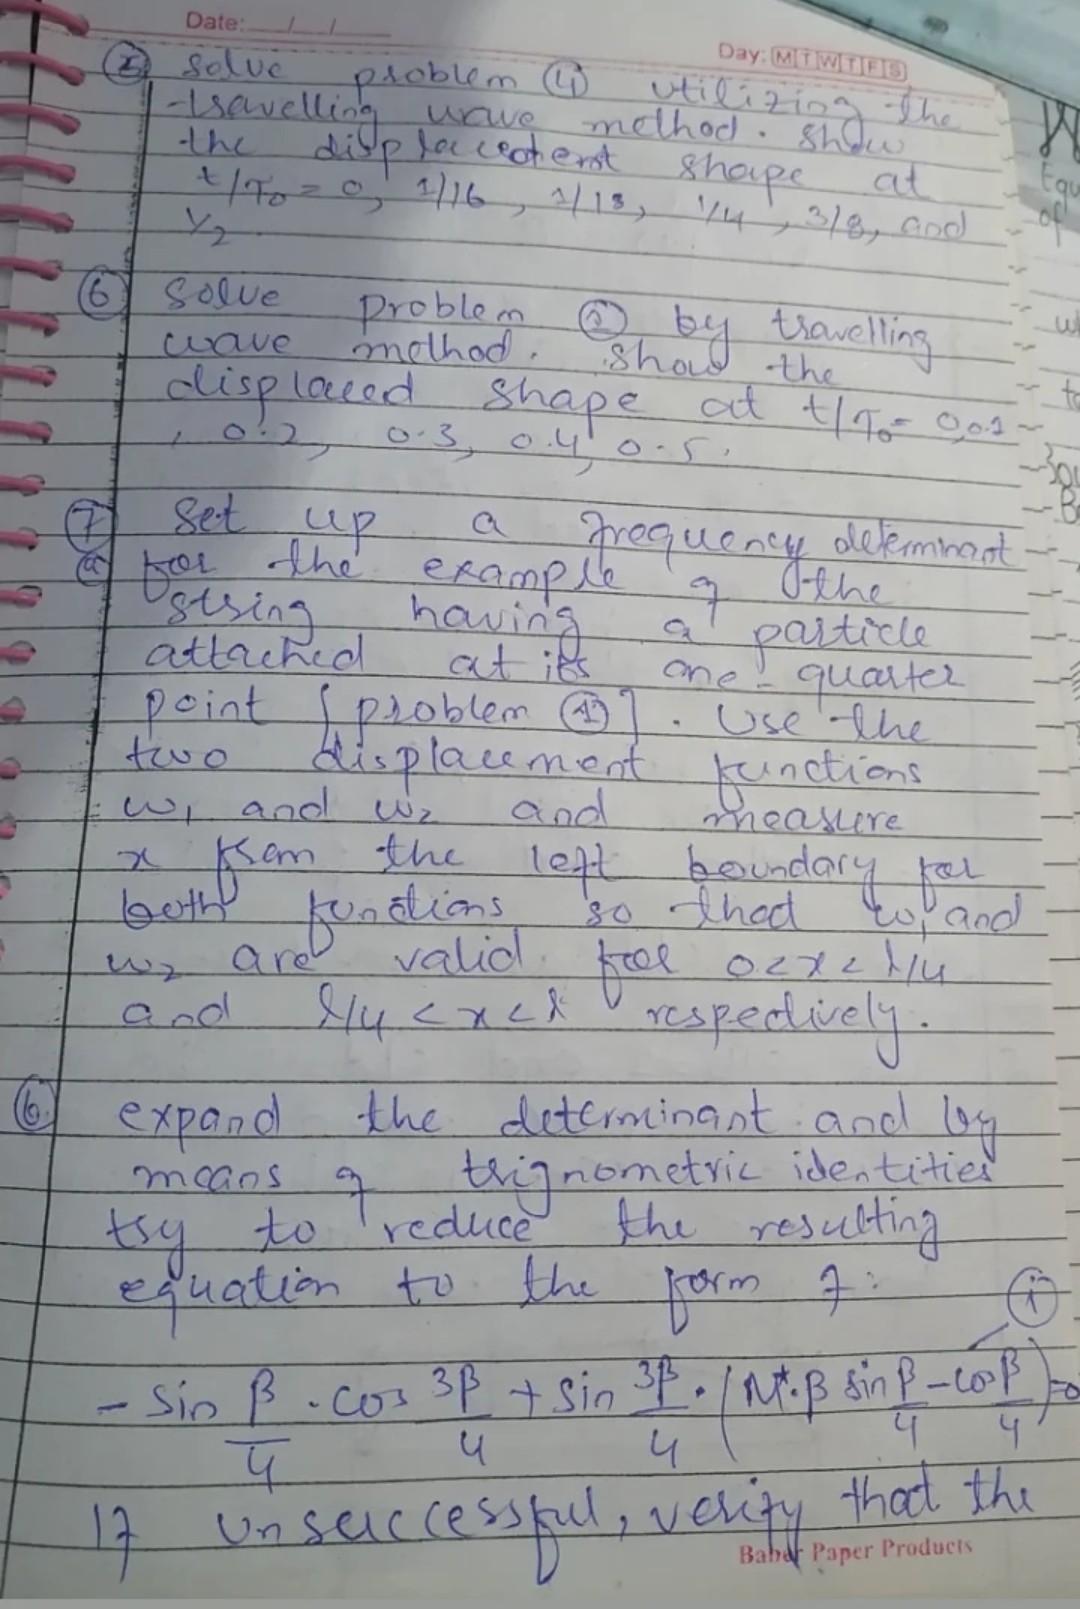 Date: / /
Day: M T W T F S
② solve problem ④ utilizing the
travelling wave method. show
the displacement shape at
t/T₀ = 0, 1/16, 1/18, 1/4, 3/8, and
1/2
⑥ Solve problem ② by travelling
wave method. show the
displaced shape at t/T₀ = 0,0.1
, 0.2, 0.3, 0.4, 0.5.
⑦ Set up a frequency determinant
ⓐ for the example of the
string having a particle
attached at its one-quarter
point [problem ①]. Use the
two displacement functions
w₁ and w₂ and measure
x from the left boundary for
both functions so that w₁ and
w₂ are valid for 0<x<l/4
and l/4<x<l respectively.
ⓑ expand the determinant and by
means of trignometric identities
try to reduce the resulting
equation to the form of:
ⓘ
- sin β/4 . cos 3β/4 + sin 3β/4 . (M*.β sin β/4 - cos β/4)=0
If unsuccessful, verify that the
Baber Paper Products